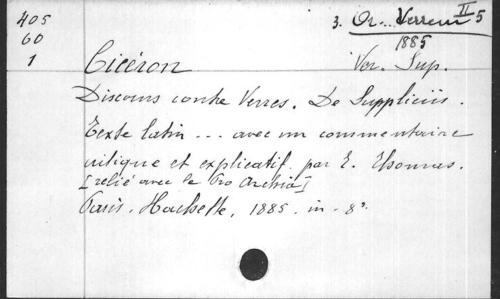 405
60
1
3. Or... Verrem II 5
1885
Ver. Sup.
Cicéron
Discours contre Verres. De Suppliciis.
Texte latin ... avec un commentaire
critique et explicatif, par E. Thomas.
[relié avec le Pro Archia]
Paris. Hachette, 1885. in-8°.